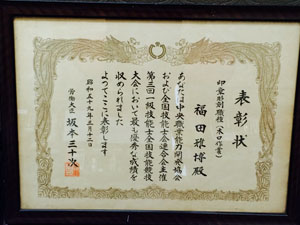 表彰状
印章彫刻職種（木口作業）
福田雅博殿
あなたは中央職業能力開発協会
および全国技能士会連合会主催
第三回一級技能士全国技能競技
大会において最も優秀な成績を
収められました
よってここに表彰します
昭和五十九年三月十二日
労働大臣 坂本三十次